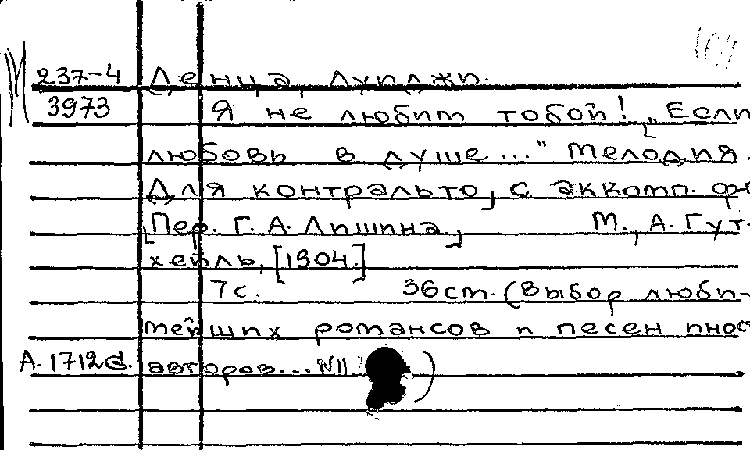 М
237-4 Денца, Луиджи.
3973 Я не любим тобой! „Если
любовь в душе..." Мелодия.
Для контральто, с аккомп. фо
[Пер. Г. А. Лишина,] М., А. Гут-
хейль, [1904.]
7с. 36ст. (Выбор люби-
мейших романсов и песен иност
А. 1712 авторов... №11)